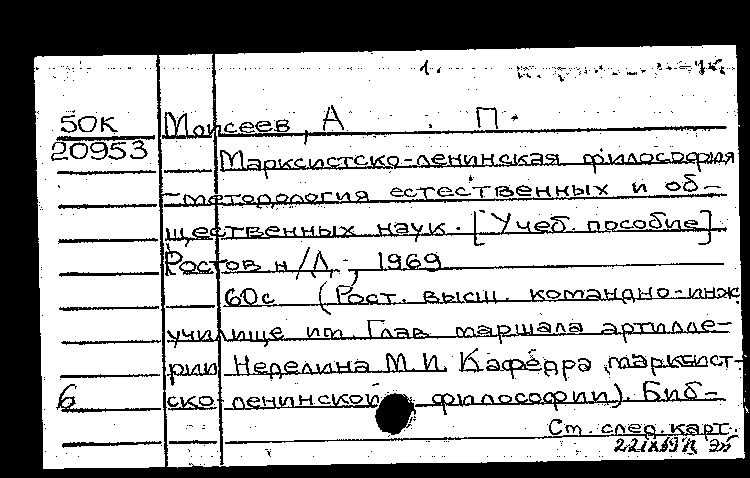 1.
50К Моисеев, А. П.
20953 Марксистско-ленинская философия
-методология естественных и об-
щественных наук. [Учеб. пособие]
Ростов н/Д, 1969
60с (Рост. высш. командно-инж
училище им Глав маршала артилле-
рии Неделина М.И. Кафедра марксист-
6 ско ленинской философии). Биб-
См. след. карт.